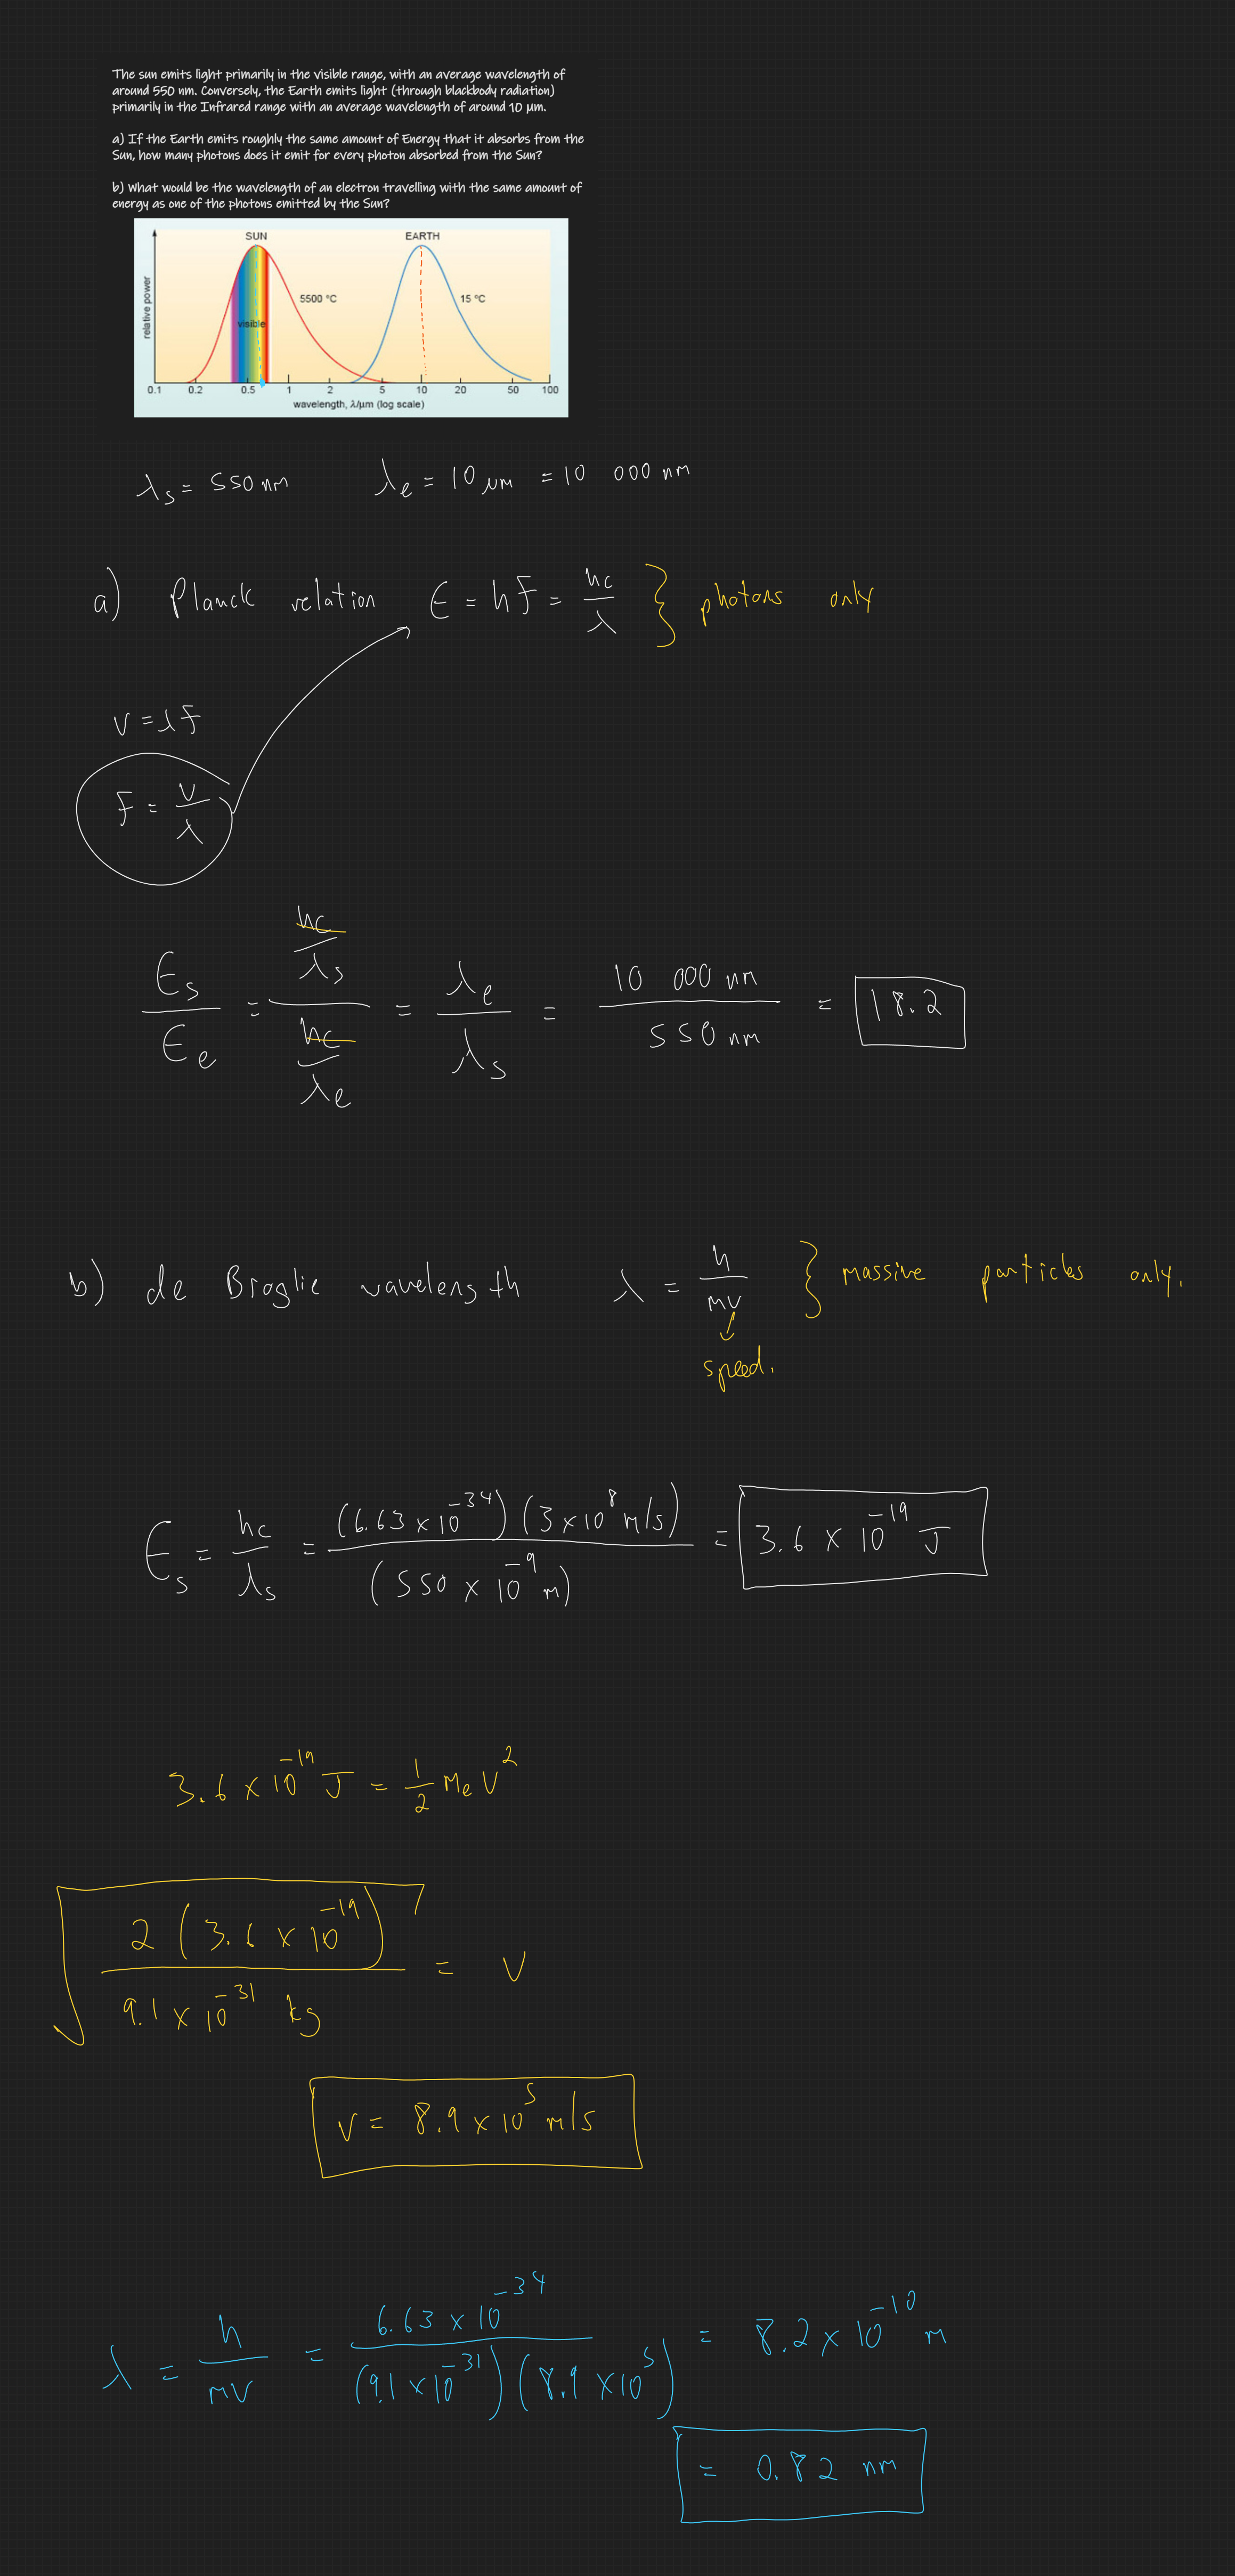 The sun emits light primarily in the visible range, with an average wavelength of
around 550 nm. Conversely, the Earth emits light (through blackbody radiation)
primarily in the Infrared range with an average wavelength of around 10 μm.
a) If the Earth emits roughly the same amount of Energy that it absorbs from the
Sun, how many photons does it emit for every photon absorbed from the Sun?
b) What would be the wavelength of an electron travelling with the same amount of
energy as one of the photons emitted by the Sun?
SUN EARTH
relative power
5500 °C 15 °C
visible
0.1 0.2 0.5 1 2 5 10 20 50 100
wavelength, λ/μm (log scale)
λs = 550 nm λe = 10 μm = 10 000 nm
a) Planck relation E = hf = hc/λ } photons only
v = λf
f = v/λ
Es/Ee = (hc/λs)/(hc/λe) = λe/λs = 10 000 nm/550 nm = 18.2
b) de Broglie wavelength λ = h/mv } massive particles only.
speed.
Es = hc/λs = (6.63 × 10^-34)(3 × 10^8 m/s)/(550 × 10^-9 m) = 3.6 × 10^-19 J
3.6 × 10^-19 J = 1/2 me v^2
√(2(3.6 × 10^-19)/9.1 × 10^-31 kg) = v
v = 8.9 × 10^5 m/s
λ = h/mv = 6.63 × 10^-34/(9.1 × 10^-31)(8.9 × 10^5) = 8.2 × 10^-10 m
= 0.82 nm